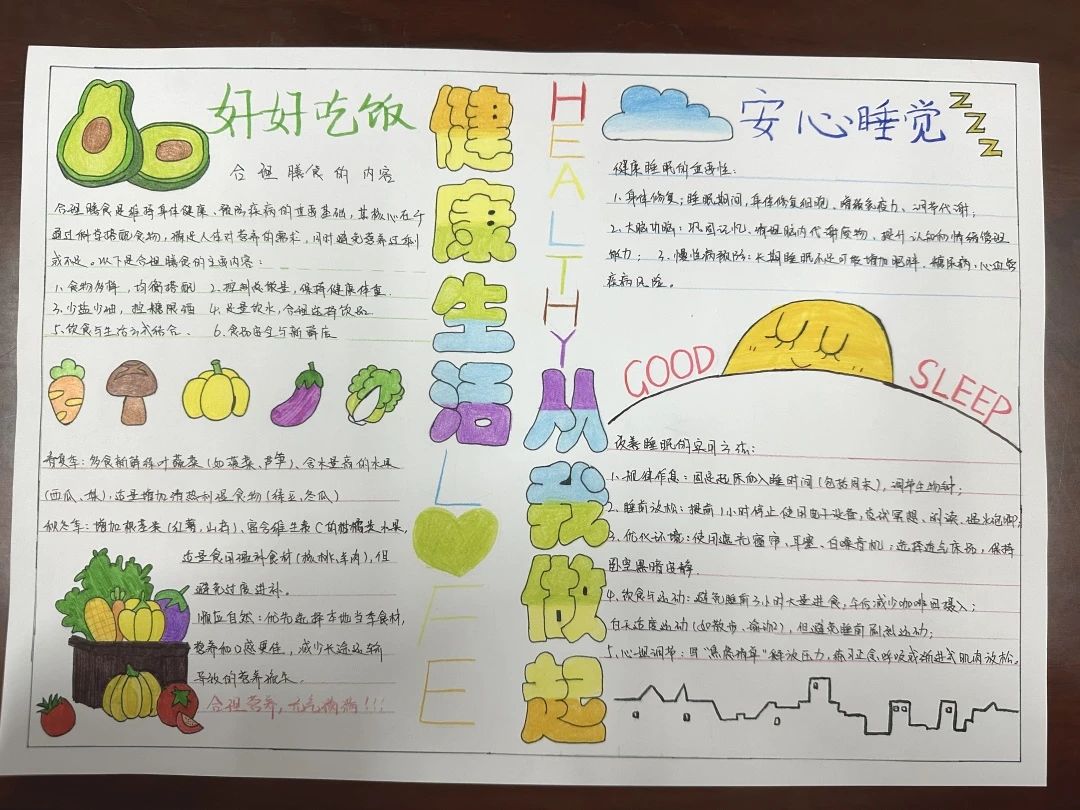 好好吃饭
合理膳食的内容
合理膳食是维持身体健康、预防疾病的重要基础,其核心在于
通过科学搭配食物,满足人体对营养的需求,同时避免营养过剩
或不足。以下是合理膳食的主要内容:
1.食物多样,均衡搭配 2.控制总能量,保持健康体重
3.少盐少油,控糖限酒 4.足量饮水,合理选择饮品
5.饮食与生活方式结合、 6.食品安全与新鲜度
春夏季:多食新鲜绿叶蔬菜(如菠菜、芦笋)、含水量高的水果
(西瓜、桃),适量增加清热利湿食物(绿豆、冬瓜)
秋冬季:增加根茎类(红薯、山药)、富含维生素C的柑橘类水果,
适量食用温补食材(核桃、羊肉),但
避免过度进补。
顺应自然:优先选择本地当季食材,
营养和口感更佳,减少长途运输
导致的营养流失。
合理营养,元气满满!!!
健康生活
L
F
E
HEALTHY
从我做起
安心睡觉
Z
Z
Z
健康睡眠的重要性:
1.身体修复:睡眠期间,身体修复细胞、增强免疫力、调节代谢;
2.大脑功能:巩固记忆、清理脑内代谢废物、提升认知和情绪管理
能力; 3.慢性病预防:长期睡眠不足可能增加肥胖、糖尿病、心血管
疾病风险。
GOOD SLEEP
改善睡眠的实用方法:
1、规律作息:固定起床和入睡时间(包括周末),调节生物钟;
2、睡前放松:提前1小时停止使用电子设备,尝试冥想、阅读、温水泡脚;
3、优化环境:使用遮光窗帘、耳塞、白噪音机;选择透气床品,保持
卧室黑暗安静
4、饮食与运动:避免睡前3小时大量进食,午后减少咖啡因摄入;
白天适度运动(如散步、瑜伽),但避免睡前剧烈运动;
5、心理调节:用"焦虑清单"释放压力,练习正念呼吸或渐进式肌肉放松。